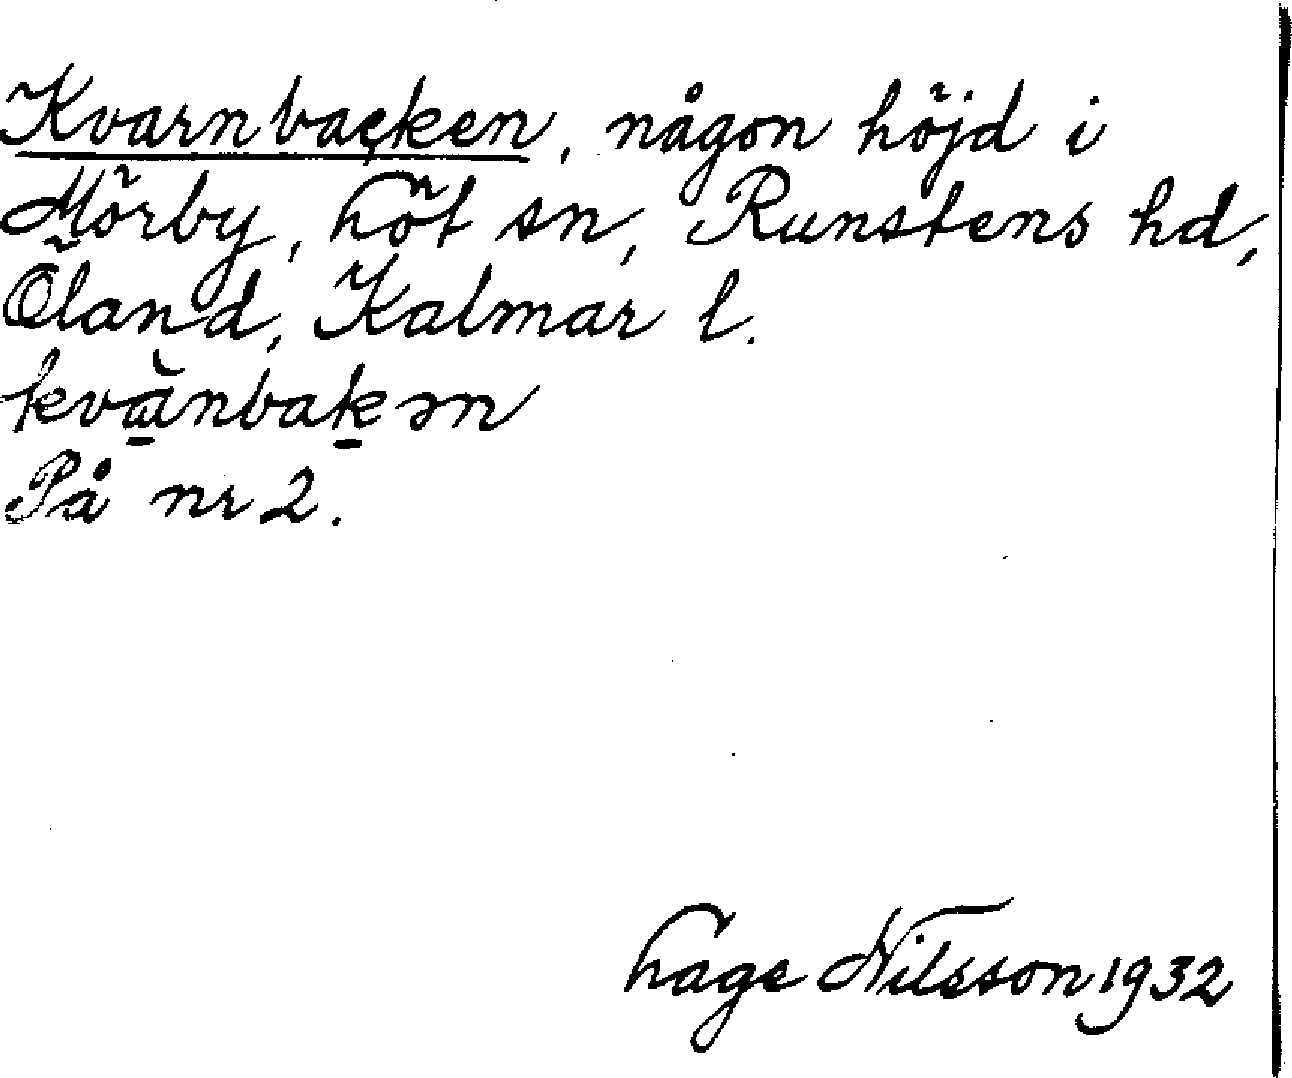 Kvarnbacken, någon höjd i
Mörby, Löt sn, Runstens hd,
Öland, Kalmar l.
kvanbakən
På nr 2.
Lage Nilsson 1932